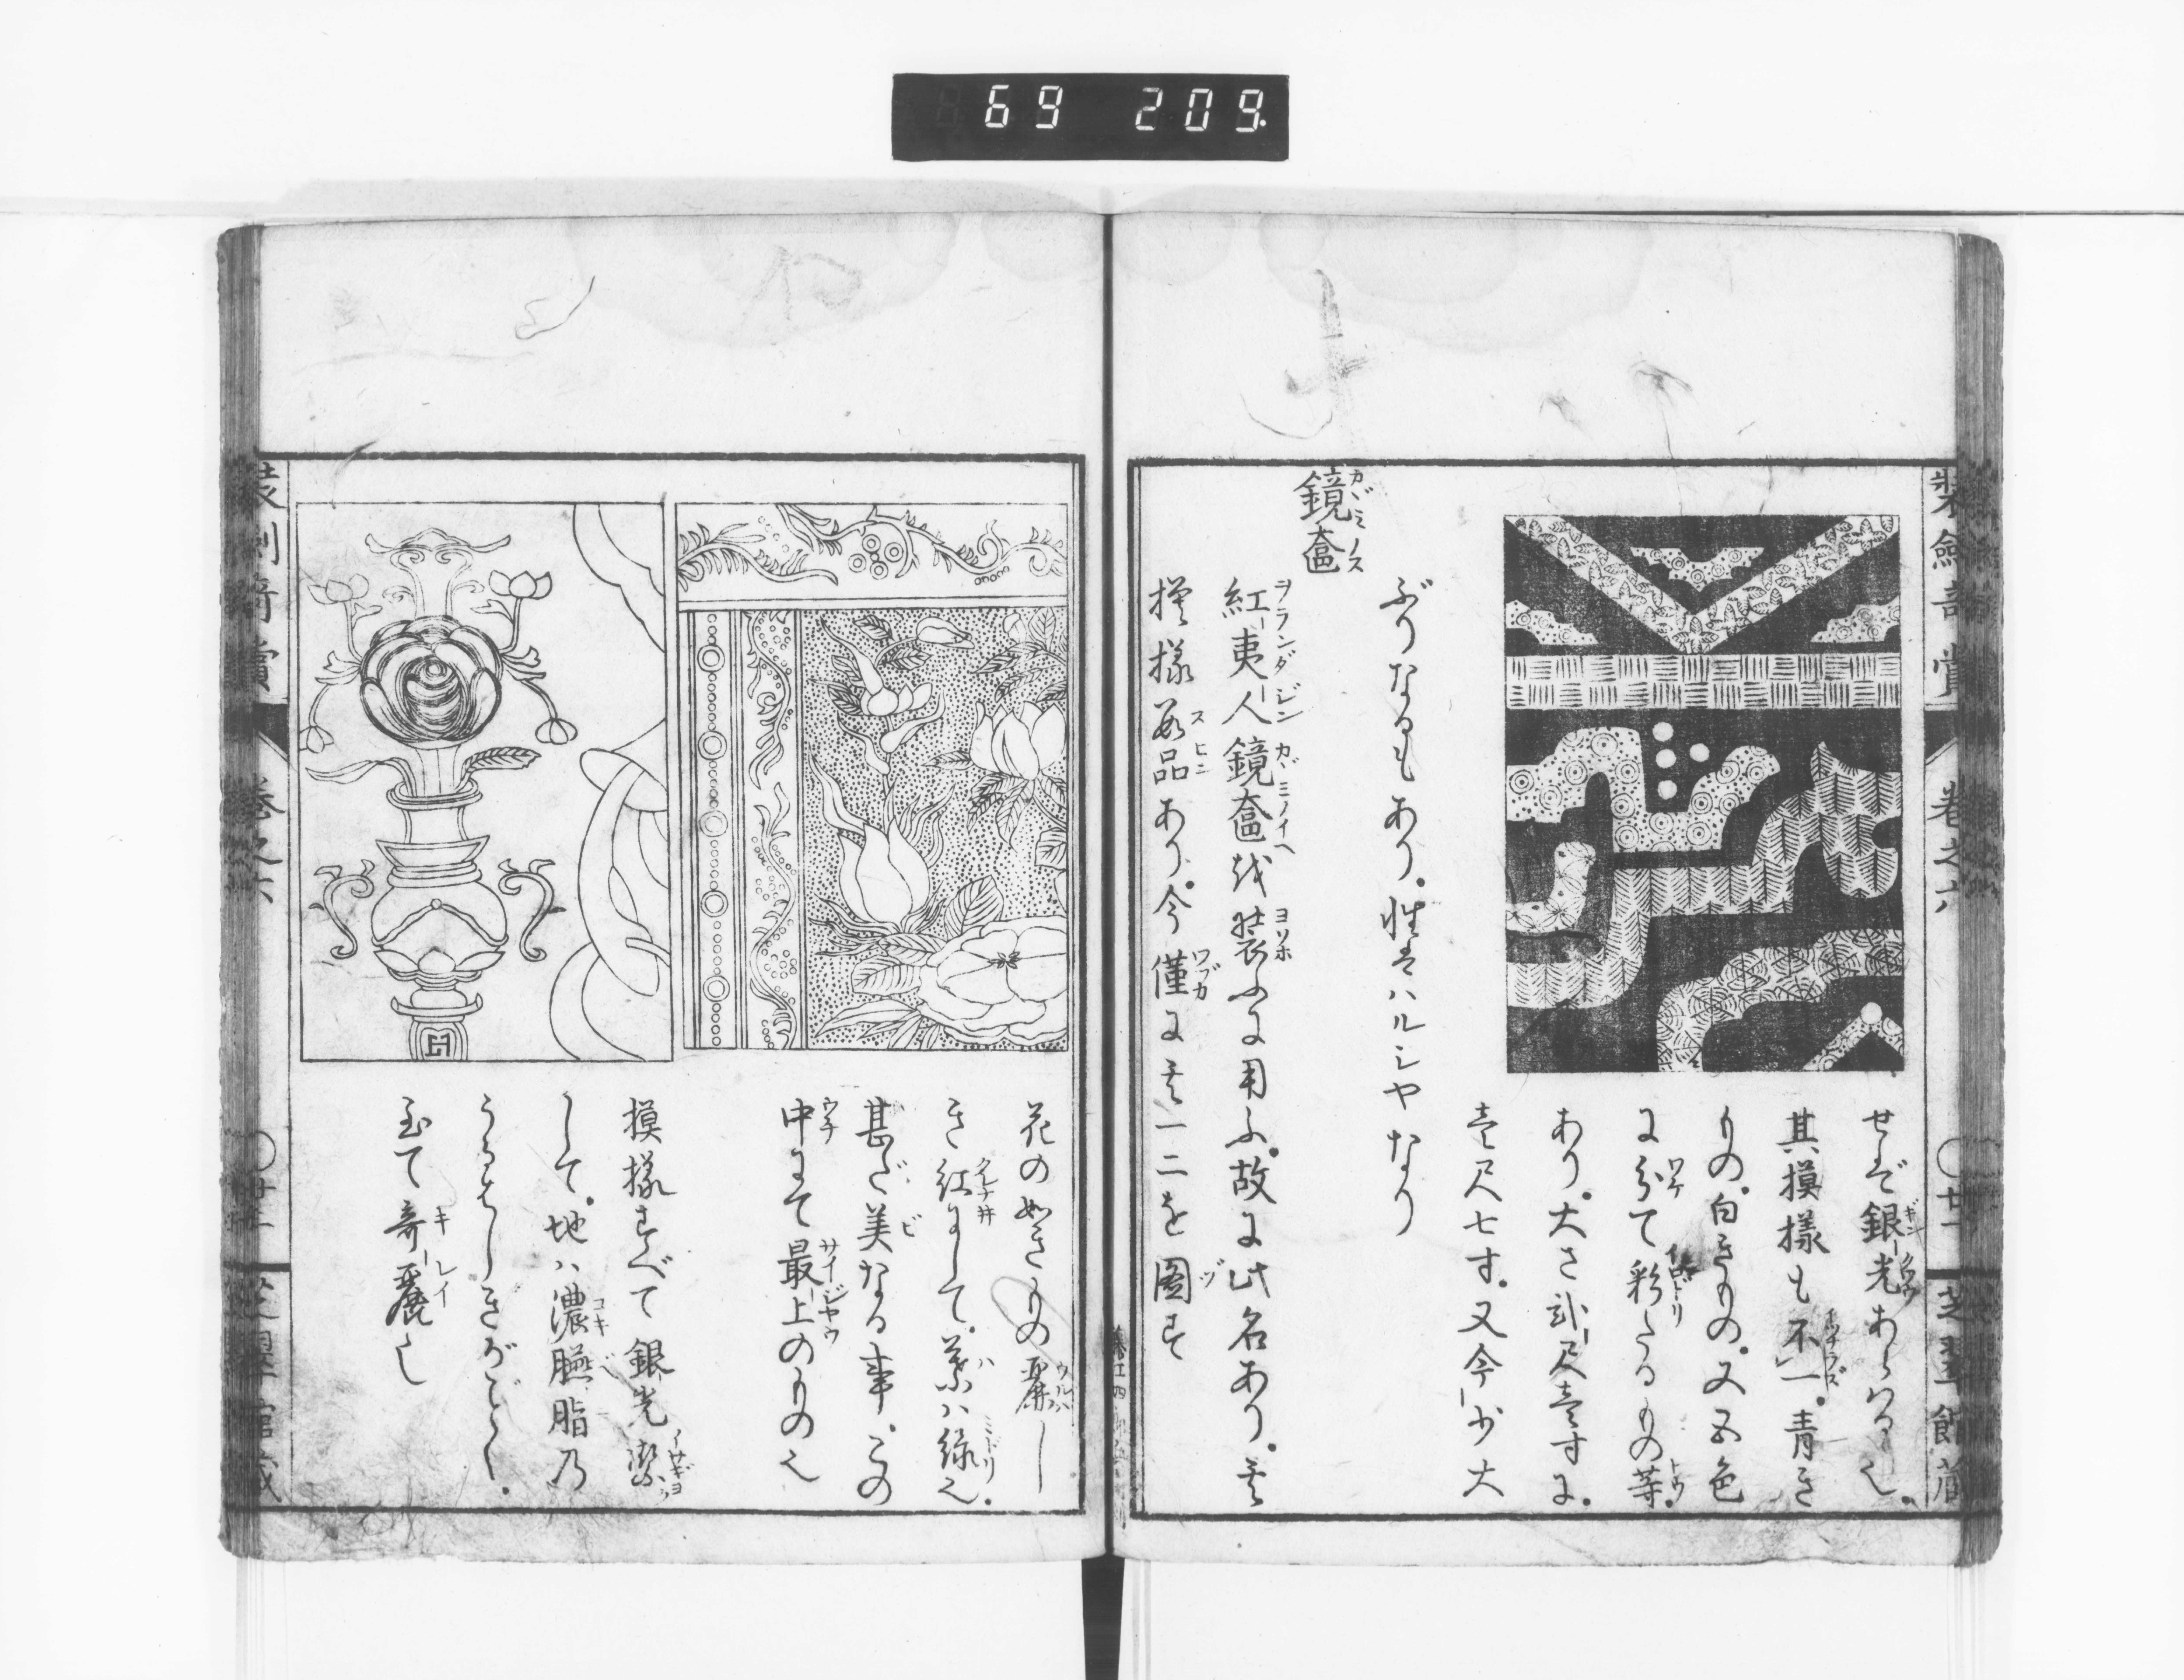 69 209
装劍奇賞
巻之六
〇廿一
芝翠館藏
せで銀光あらはるゝ也。
其摸様も不一。青き
もの。白きもの。又五色
に分て彩たるもの等。
あり。大さ弐尺壱寸に。
壱尺七寸。又今少大
ぶりなるもあり。性はハルシヤなり
鏡奩
紅夷人鏡奩を装ふに用ふ。故に此名あり。其
摸様数品あり。今僅に其一二を圖す
花の如きもの麗し
き紅にして。葉ハ緑也。
甚だ美なる事。この
中にて最上のもの也
摸様すべて銀光潔
して。地ハ濃臙脂乃
うるはしきがごとし。
至て奇麗し
巻之六